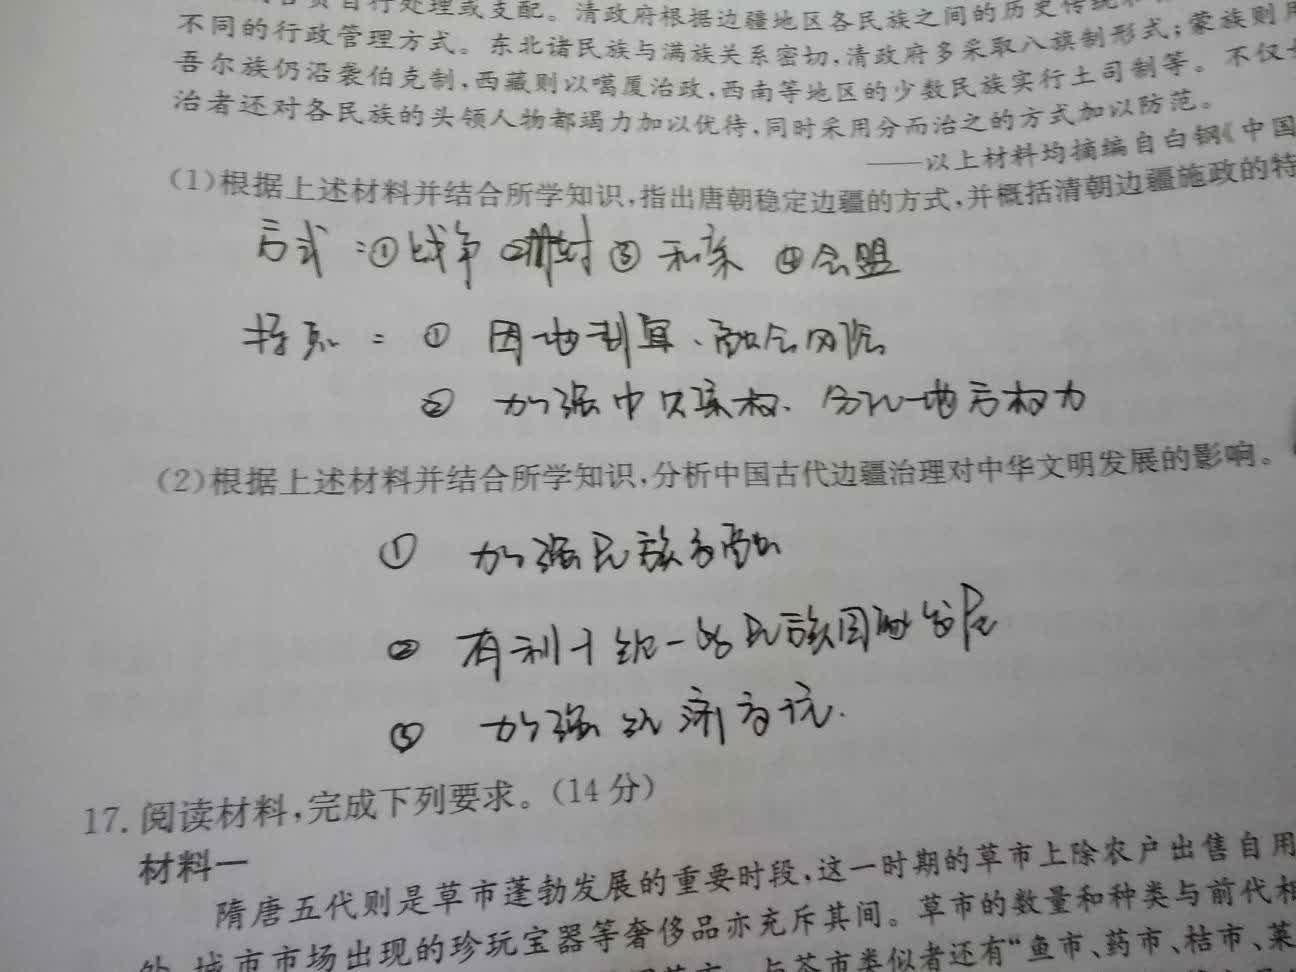 自行处理或支配。清政府根据边疆地区各民族之间的历史传统和
不同的行政管理方式。东北诸民族与满族关系密切,清政府多采取八旗制形式;蒙族则用
吾尔族仍沿袭伯克制,西藏则以噶厦治政,西南等地区的少数民族实行土司制等。不仅
治者还对各民族的头领人物都竭力加以优待,同时采用分而治之的方式加以防范。
——以上材料均摘编自白钢《中国
(1)根据上述材料并结合所学知识,指出唐朝稳定边疆的方式,并概括清朝边疆施政的特
方式:①战争 ②册封 ③和亲 ④会盟
特点:① 因地制宜、
② 加强中央集权、分化地方权力
(2)根据上述材料并结合所学知识,分析中国古代边疆治理对中华文明发展的影响。
① 加强民族交融
② 有利于统一的民族国家发展
③ 加强经济交流.
17. 阅读材料,完成下列要求。(14分)
材料一
隋唐五代则是草市蓬勃发展的重要时段,这一时期的草市上除农户出售自用
外,城市市场出现的珍玩宝器等奢侈品亦充斥其间。草市的数量和种类与前代相
与茶市类似者还有“鱼市、药市、桔市、菜